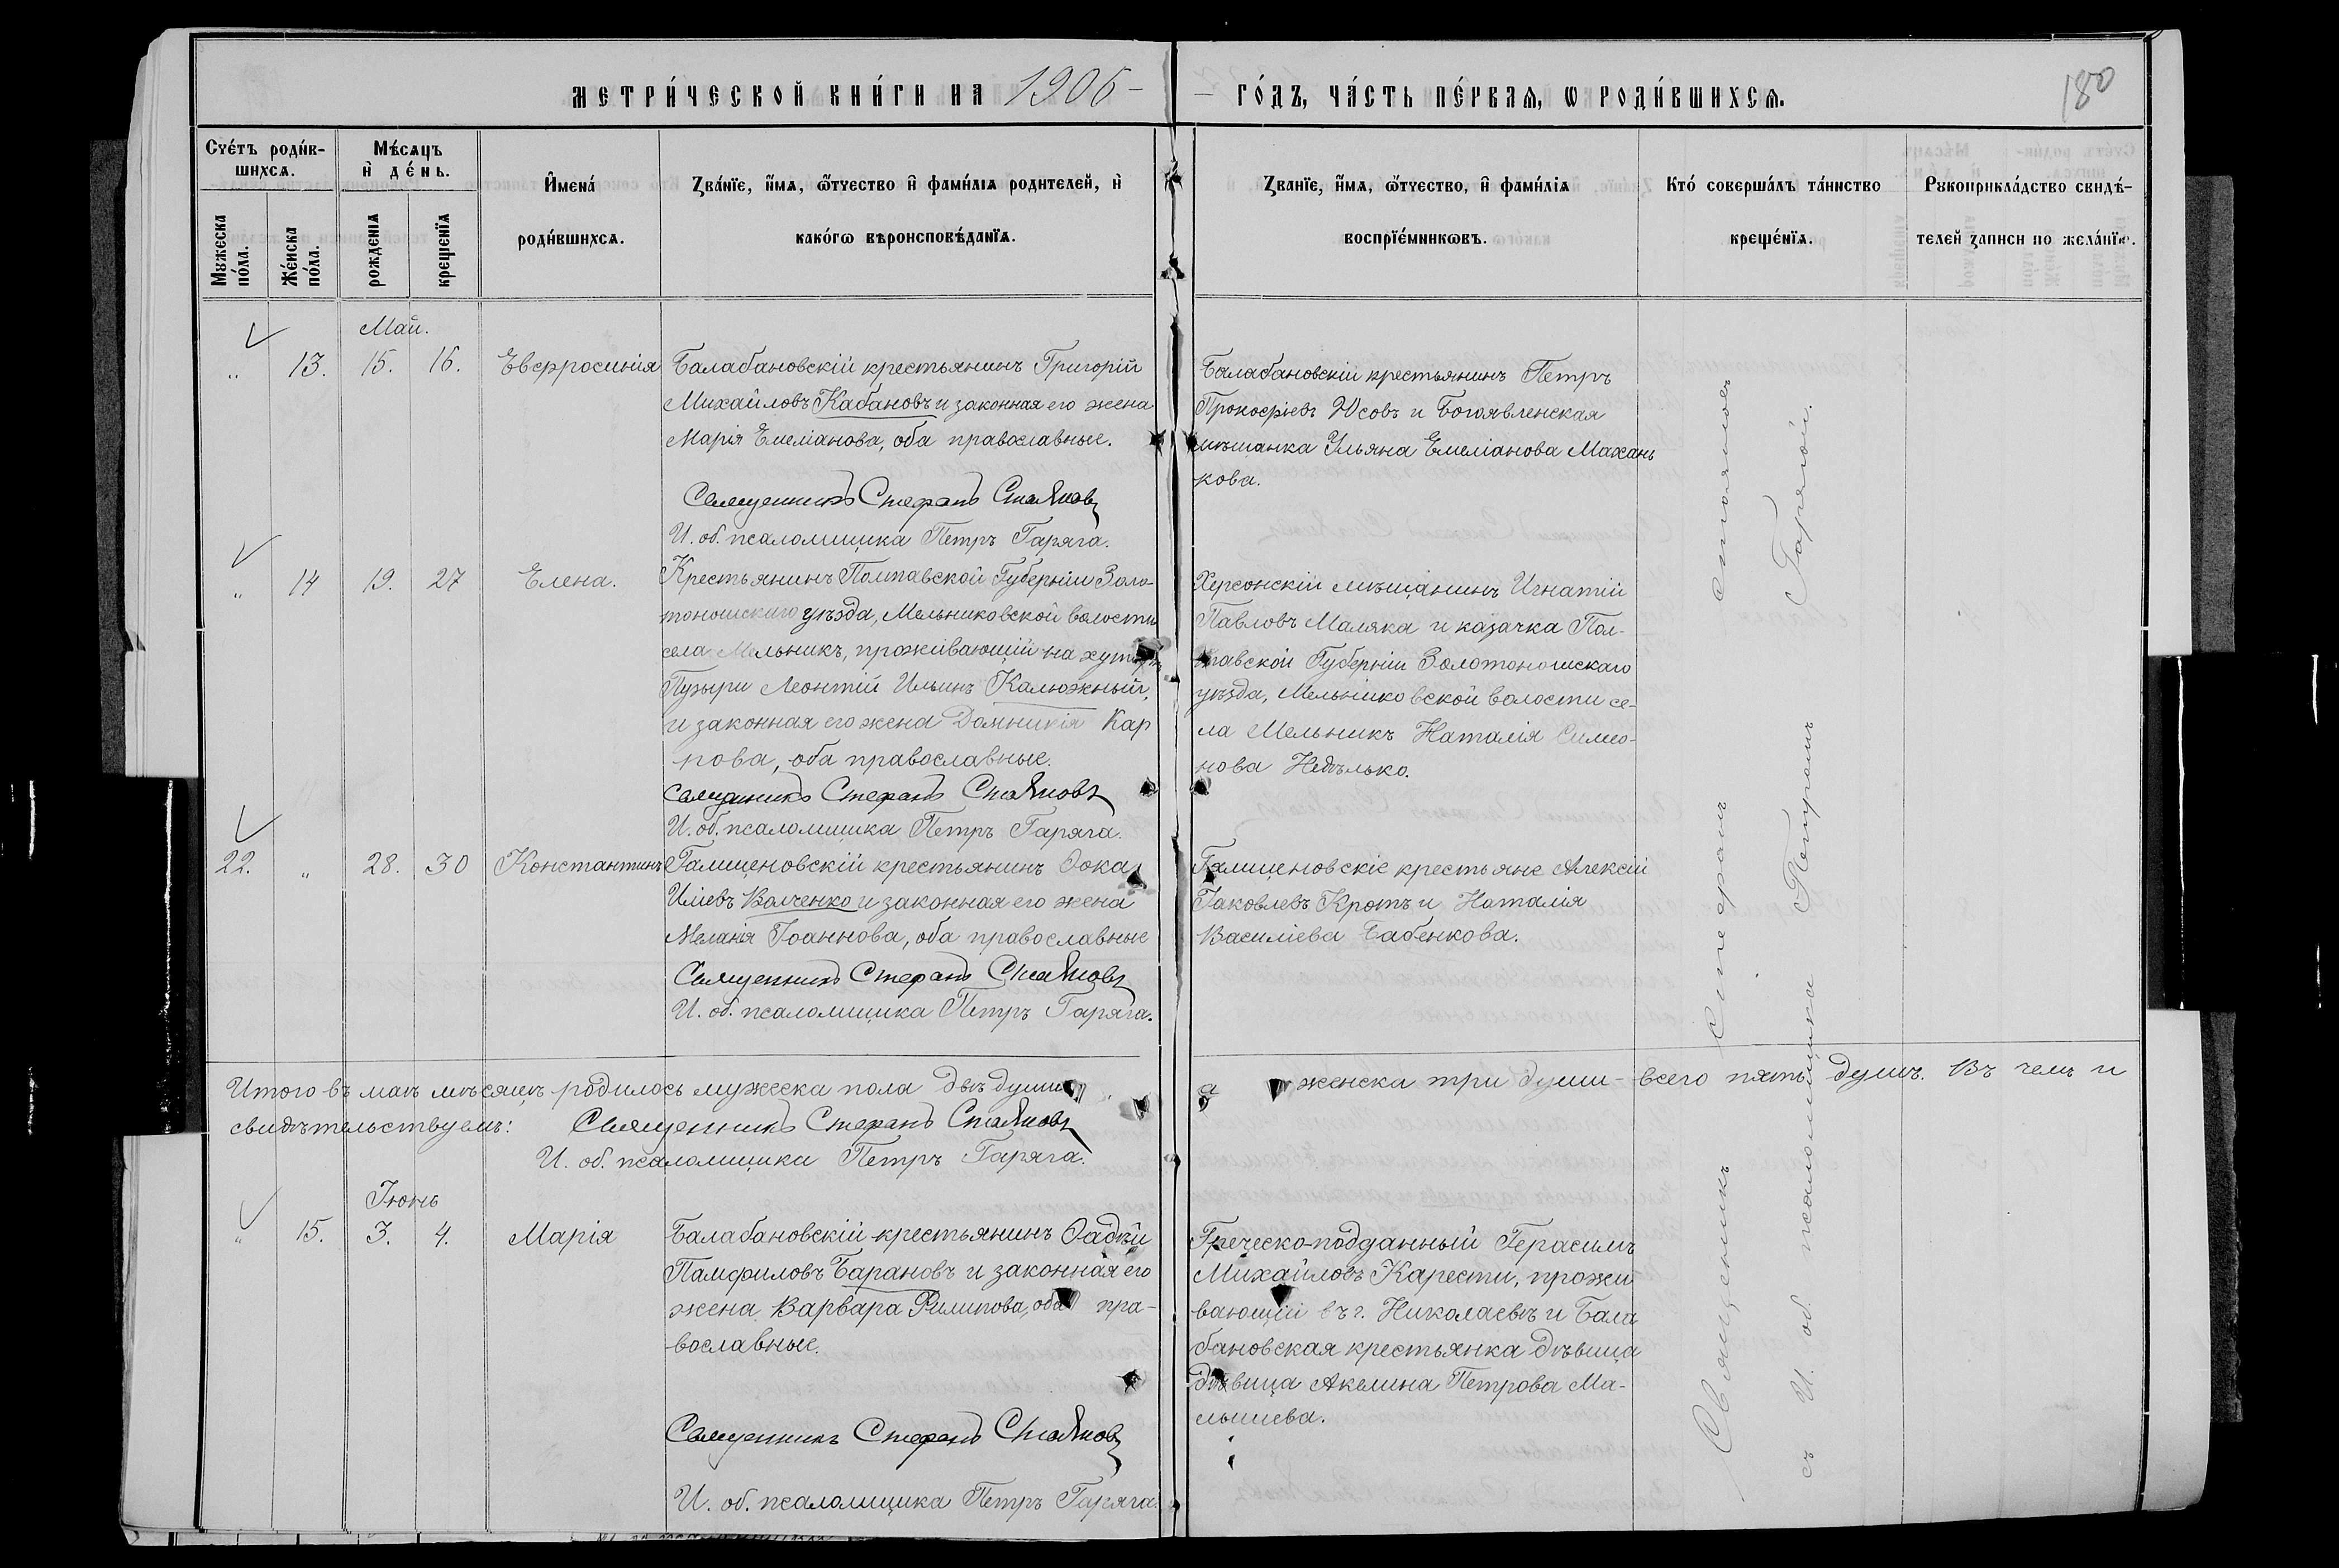 МЕТРИ́ЧЕСКОЙ КНИ́ГИ НА 1906 -
- ГО́ДЪ, ЧА́СТЬ ПЕ́РВАѦ, Ѡ РОДИ́ВШИХСѦ.
180
Сче́тъ роди́в-
шихсѧ.
Мꙋжеска по́ла.
Же́нска по́ла.
Мѣ́сѧцъ
и҆ де́нь.
рожденїѧ
крещенїѧ
И҆мена́
роди́вшихсѧ.
Зва́нїе, и҆́мѧ, ѻ҆́тчество и҆ фами́лїѧ родителей, и҆
како́гѡ вѣроисповѣ́данїѧ.
Званїе, и҆́мѧ, ѻ҆́тчество, и҆ фами́лїѧ
воспрїе́мникѡвъ.
Кто́ соверша́лъ та́инство
креще́нїѧ.
Рꙋкоприкла́дство свидѣ́-
телей записи по жела́нїю.
Май.
„ 13. 15. 16. Евфросинія
Балабановскій крестьянинъ Григорій
Михайловъ Кабановъ и законная его жена
Марія Емеліанова, оба православные.
Священникъ Стефанъ Стояновъ
И. об. псаломщика Петръ Гаряга.
Балабановскій крестьянинъ Петръ
Прокофіевъ Усовъ и Богоявленская
мѣщанка Ульяна Емеліанова Махань
кова.
„ 14 19. 27 Елена.
Крестьянинъ Полтавской Губерніи Золо-
тоношскаго уѣзда, Мельниковской волости
села Мельникъ, проживающій на хуторѣ
Пузыри Леонтій Ильинъ Калюжный,
и законная его жена Домникія Кар
пова, оба православные.
Священникъ Стефанъ Стояновъ
И. об. псаломщика Петръ Гаряга.
Херсонскій мѣщанинъ Игнатій
Павловъ Маляка и казачка Пол-
тавской Губерніи Золотоношскаго
уѣзда, Мельниковской волости се-
ла Мельникъ Наталія Симео-
нова Недѣлько.
22. „ 28. 30 Константинъ
Галициновскій крестьянинъ Ѳока
Иліевъ Волченко и законная его жена
Меланія Іоаннова, оба православные
Священникъ Стефанъ Стояновъ
И. об. псаломщика Петръ Гаряга.
Галициновскіе крестьяне Алексій
Іаковлевъ Кротъ и Наталія
Василіева Бабенкова.
Итого въ маѣ мѣсяцѣ родилось мужеска пола двѣ души
а женска три души - всего пять душъ. Въ чемъ и
свидѣтельствуемъ: Священникъ Стефанъ Стояновъ
И. об. псаломщика Петръ Гаряга.
Іюнь
„ 15. 3. 4. Марія
Балабановскій крестьянинъ Ѳадѣй
Памфиловъ Барановъ и законная его
жена Варвара Филипова, оба пра-
вославные.
Священникъ Стефанъ Стояновъ
И. об. псаломщика Петръ Гаряга.
Греческо-подданный Герасимъ
Михайловъ Карести, прожи
вающій въ г. Николаевѣ и Бала
бановская крестьянка дѣвица
дѣвица Акелина Петрова Ма-
лышева.
Священникъ Стефанъ Стояновъ
съ И. об псаломщика Петромъ Гарягой.